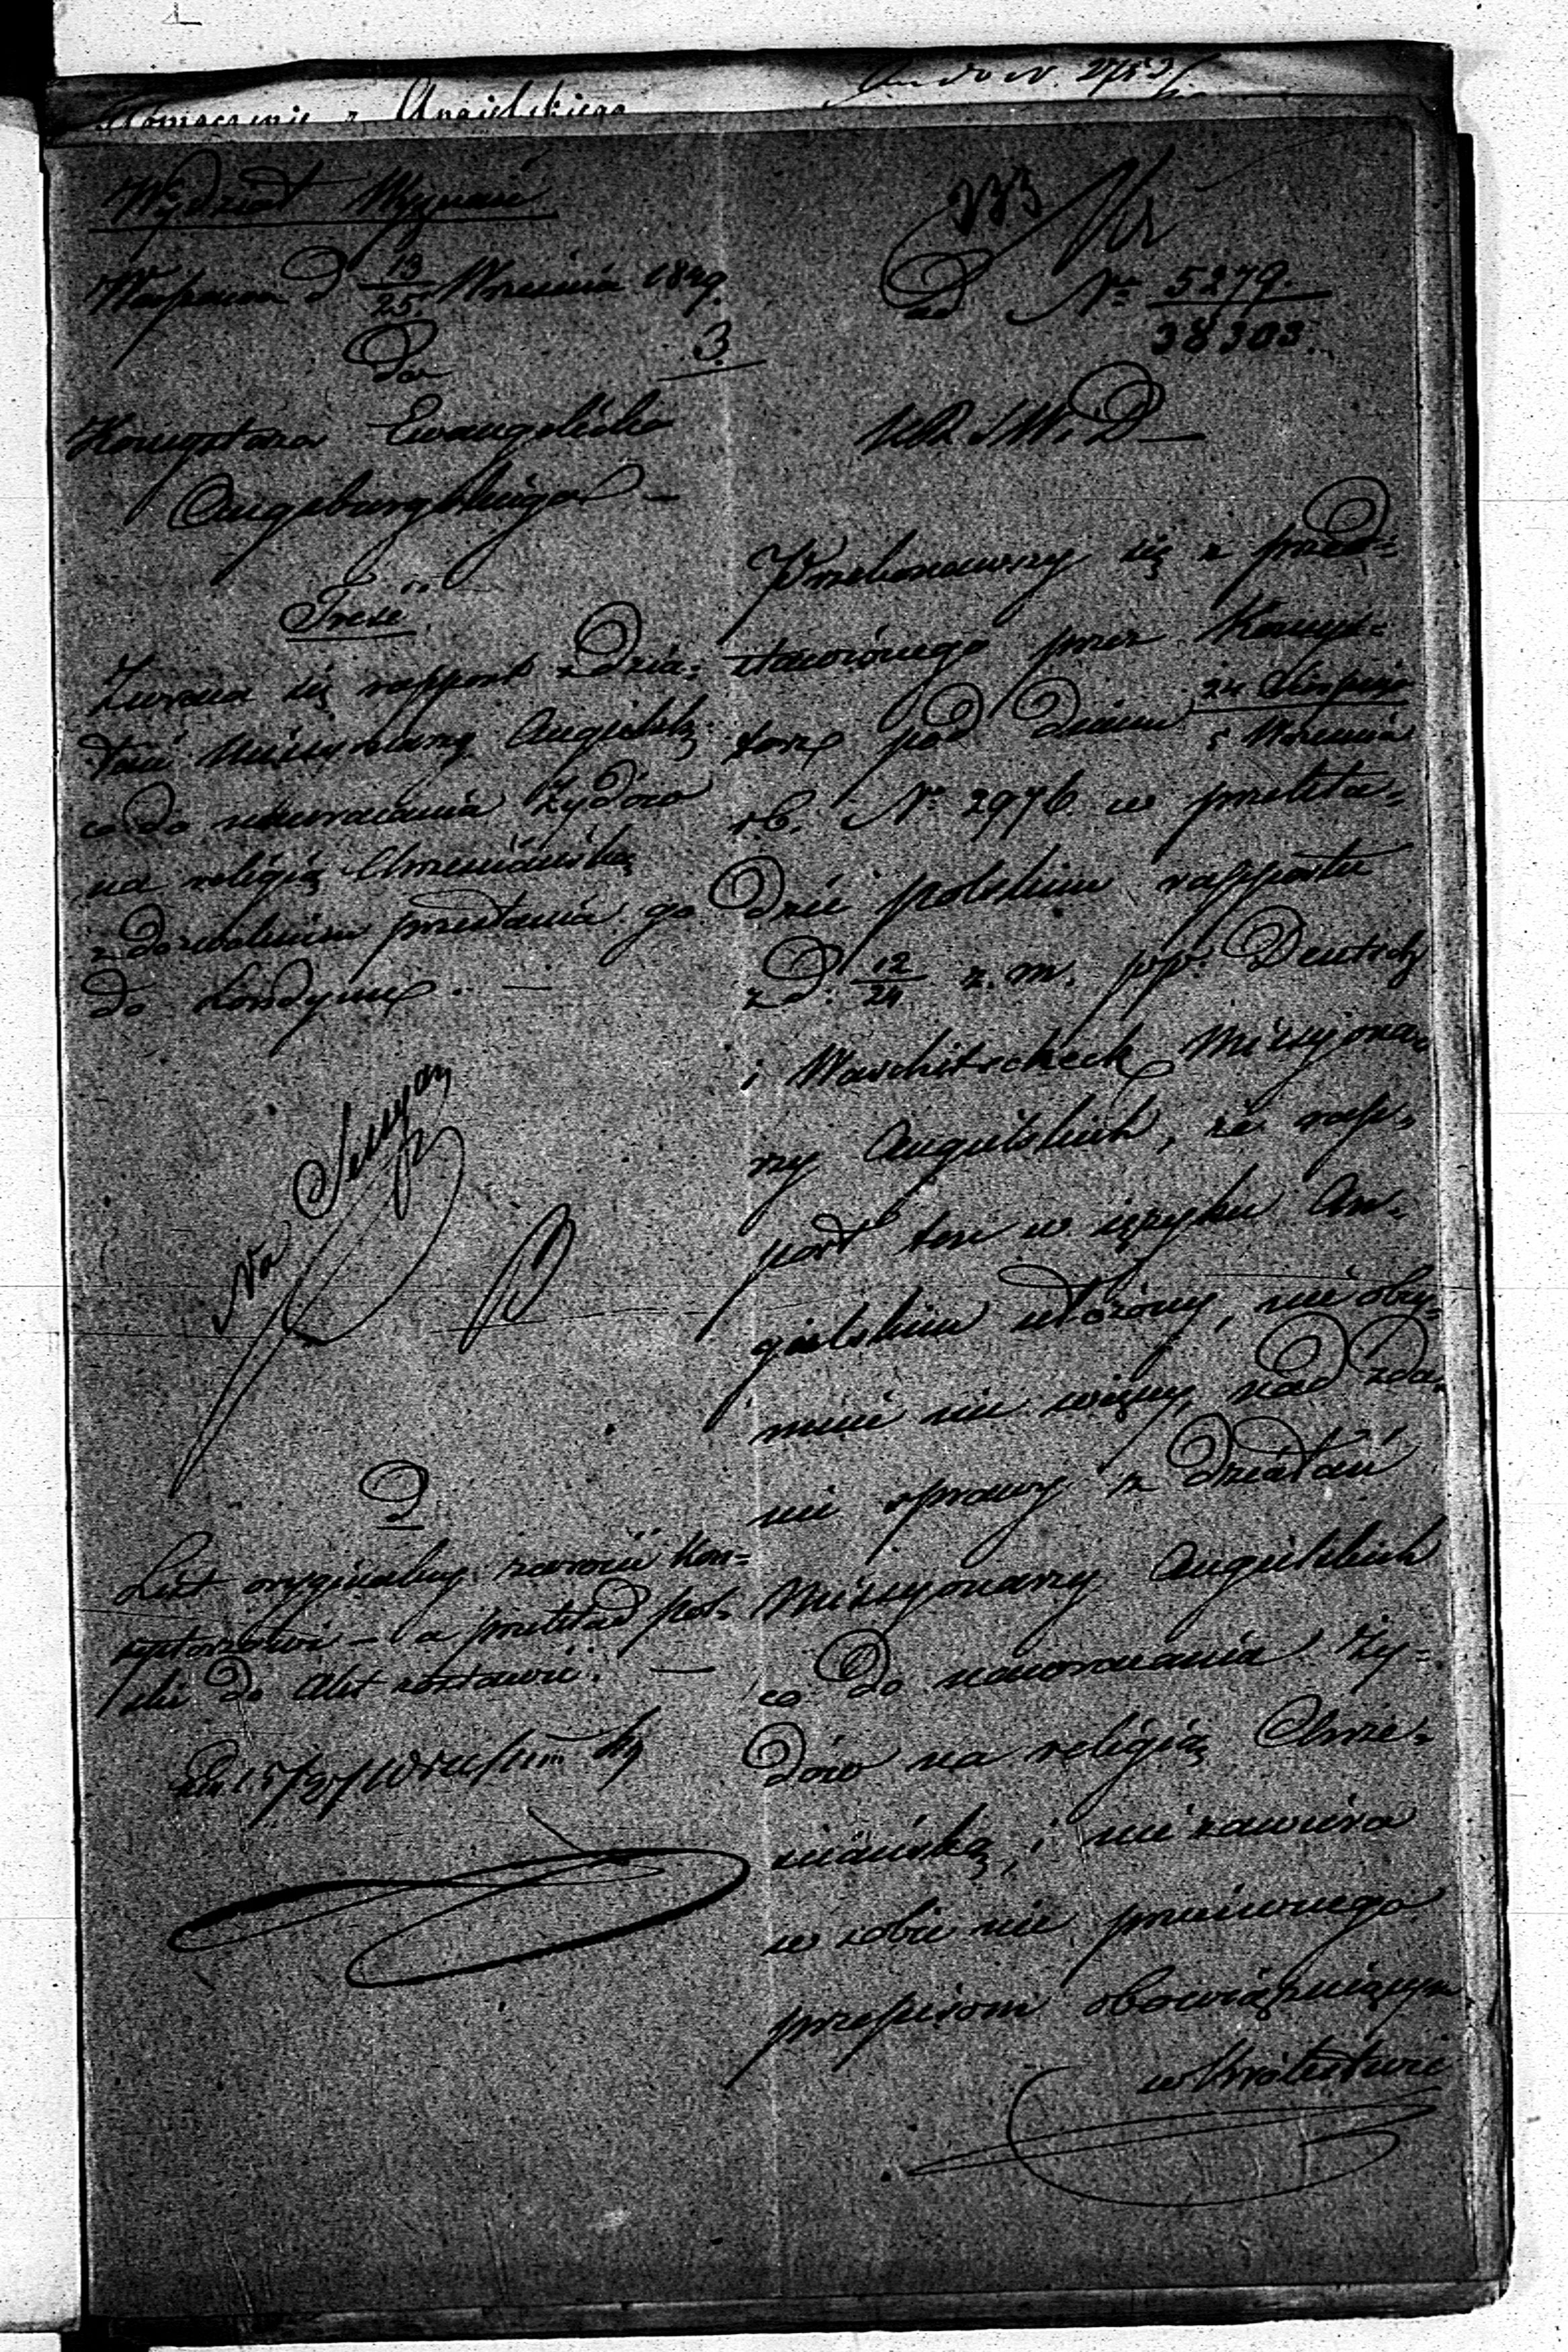 Tłomaczenie z Angielskiego
Wydział Wyznań
Warszawa d 13/25 Września 1849.
3.
Do
Konsystorza Ewangelicko
Augsburgskiego —
Treść.
Zwraca się rapport z dzia-
łań Missyonarzy Angielsk:
co do nawracania Żydów
na religią Chrześciańską
z dozwoleniem przesłania go
do Londynu. —
Na Sessyą
D
List oryginalny zwrócić Kon-
systorzowi — a przekład pol-
ski do Akt zostawić. —
ad Nr 5279.
38303.
K.R.S.W.i D —
Przekonawszy się z przed-
stawionego przez Konsys-
torz pod dniem 24 Sierpnia
5 Września
r.b. Nr 2976. w przekła-
dzie polskim rapportu
z d. 12/24 z. m. pp. Deutsch
i Waschitscheck Missyona-
rzy Angielskich, że rap-
port ten w języku An-
gielskim ułożony, nie obej-
muie nic więcej, nad zda-
nie sprawy z działań
Missyonarzy Angielskich
co do nawracania Ży-
dów na religią Chrze-
ściańską, i nie zawiera
w sobie nic przeciwnego
przepisom obowiązującym
w Królestwie